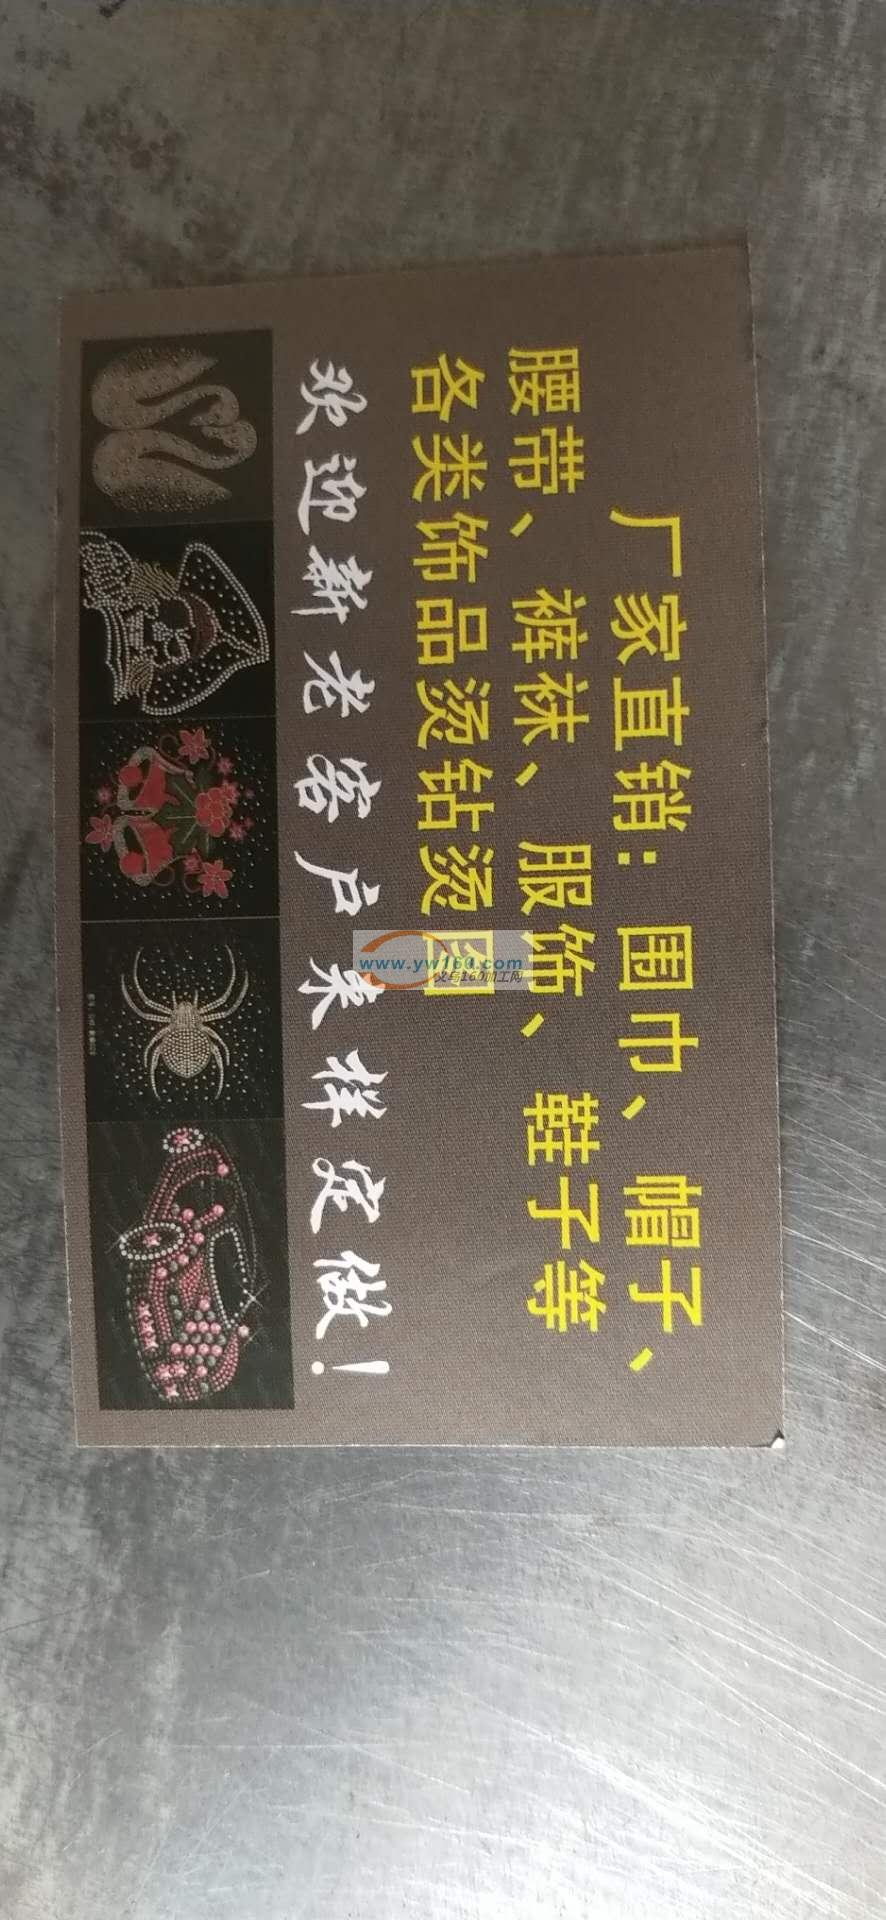 厂家直销：围巾、帽子、
腰带、裤袜、服饰、鞋子等
各类饰品烫钻烫图
欢迎新老客户来样定做！
www.yw160.com
义乌160加工网